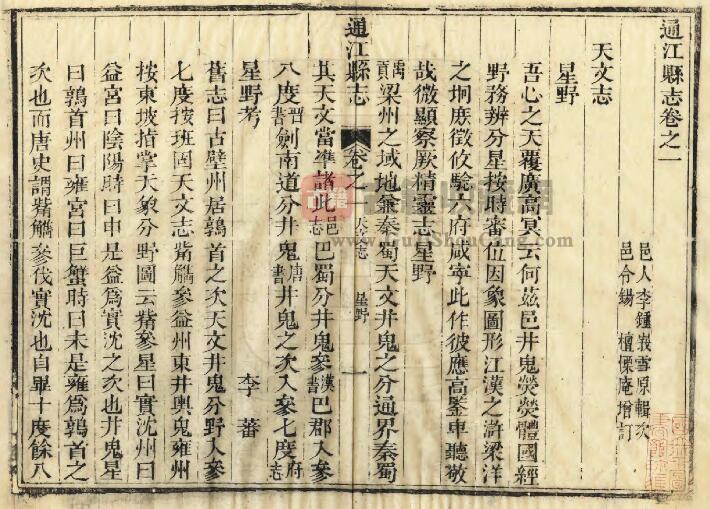 通江縣志卷之一
邑人李鍾峩雪原輯次
邑令錫檀傑庵增訂
天文志
星野
吾心之天覆廣高冥云何茲邑井鬼熒熒體國經
野務辨分星按時審位因象圖形江漢之滸梁洋
之坰庶徵攸驗六府咸寧此作彼應高鑒卑聽敬
哉微顯察厥精靈志星野
禹貢梁州之域地兼秦蜀天文井鬼之分通界秦蜀
通江縣志 卷之一 天文志 星野 一
其天文當準諸此邑志巴蜀分井鬼參漢書巴郡入參
八度晉書劍南道分井鬼唐書井鬼之次入參七度府志
星野考 李蕃
舊志曰古壁州居鶉首之次天文井鬼分野入參
七度按班固天文志觜觿參益州東井輿鬼雍州
按東坡指掌天象分野圖云觜參星曰實沈州曰
益宮曰陰陽時曰申是益爲實沈之次也井鬼星
曰鶉首州曰雍宮曰巨蟹時曰未是雍爲鶉首之
次也而唐史謂觜觿參伐實沈也自畢十度餘八